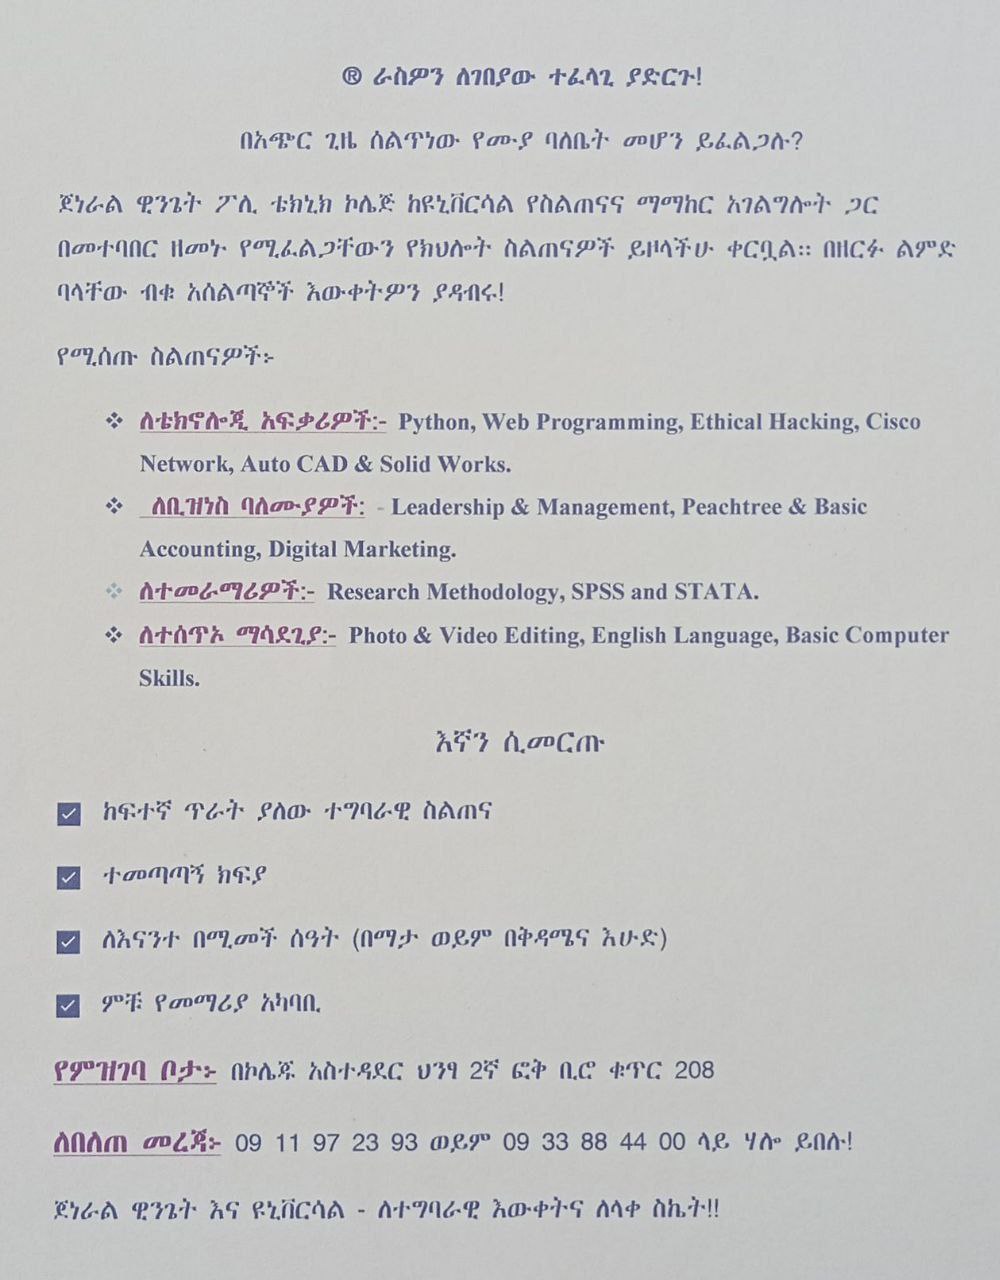 ® ራስዎን ለገበያው ተፈላጊ ያድርጉ!
በአጭር ጊዜ ሰልጥነው የሙያ ባለቤት መሆን ይፈልጋሉ?
ጀነራል ዊንጌት ፖሊ ቴክኒክ ኮሌጅ ከዩኒቨርሳል የስልጠናና ማማከር አገልግሎት ጋር
በመተባበር ዘመኑ የሚፈልጋቸውን የክህሎት ስልጠናዎች ይዞላችሁ ቀርቧል። በዘርፉ ልምድ
ባላቸው ብቁ አሰልጣኞች እውቀትዎን ያዳብሩ!
የሚሰጡ ስልጠናዎች፦
❖ ለቴክኖሎጂ አፍቃሪዎች:- Python, Web Programming, Ethical Hacking, Cisco
Network, Auto CAD & Solid Works.
❖ ለቢዝነስ ባለሙያዎች: - Leadership & Management, Peachtree & Basic
Accounting, Digital Marketing.
❖ ለተመራማሪዎች:- Research Methodology, SPSS and STATA.
❖ ለተሰጥኦ ማሳደጊያ:- Photo & Video Editing, English Language, Basic Computer
Skills.
እኛን ሲመርጡ
☑ ከፍተኛ ጥራት ያለው ተግባራዊ ስልጠና
☑ ተመጣጣኝ ክፍያ
☑ ለእናንተ በሚመች ሰዓት (በማታ ወይም በቅዳሜና እሁድ)
☑ ምቹ የመማሪያ አካባቢ
የምዝገባ ቦታ፦ በኮሌጁ አስተዳደር ህንፃ 2ኛ ፎቅ ቢሮ ቁጥር 208
ለበለጠ መረጃ፦ 09 11 97 23 93 ወይም 09 33 88 44 00 ላይ ሃሎ ይበሉ!
ጀነራል ዊንጌት እና ዩኒቨርሳል - ለተግባራዊ እውቀትና ለላቀ ስኬት!!